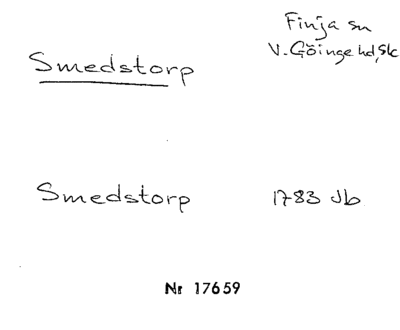 Finja sn
V. Göinge hd, Sk
Smedstorp
Smedstorp 1783 Jb
Nr 17659